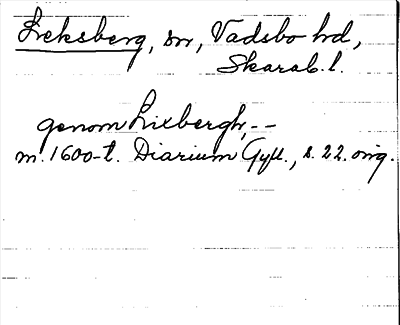 Lreksberg, sn, Vadsbo hd,
Skarab. l.
genom Lixbergh, --
m. 1600-t. Diarium Gyll., s. 22. orig.